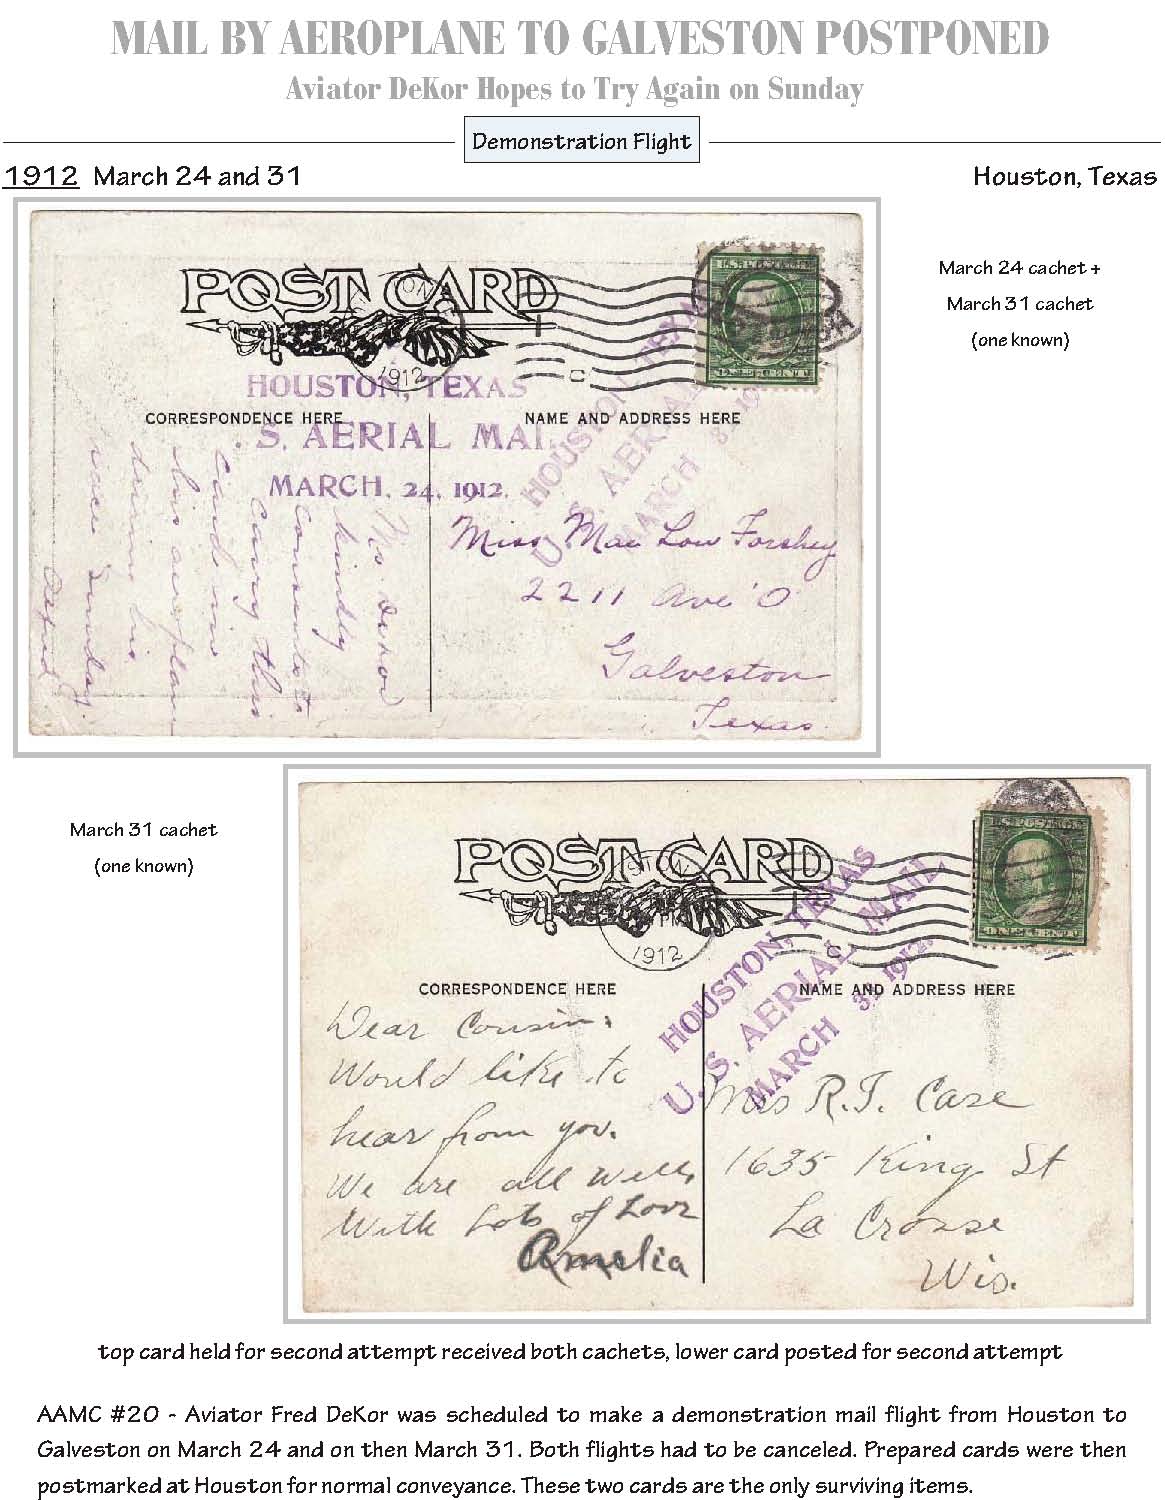 MAIL BY AEROPLANE TO GALVESTON POSTPONED
Aviator DeKor Hopes to Try Again on Sunday
Demonstration Flight
1912 March 24 and 31
Houston, Texas
March 24 cachet +
March 31 cachet
(one known)
POST CARD
1912
C
U.S. POSTAGE
HOUSTON, TEXAS
. S. AERIAL MAI
MARCH, 24, 1912.
HOUSTON, TEXAS
U. S. AERIAL
MARCH 31, 19
CORRESPONDENCE HERE
NAME AND ADDRESS HERE
Mr. Dekor
kindly
consents to
carry this
card in
his aeroplane
during his
race Sunday
Miss Mae Low Forshey
2211 Ave 'O'
Galveston
Texas.
March 31 cachet
(one known)
POST CARD
STON
PM
1912
C
HOUSTON, TEXAS
U. S. AERIAL MAIL
MARCH 31, 1912.
CORRESPONDENCE HERE
NAME AND ADDRESS HERE
Dear Cousin:
Would like to
hear from you.
We are all well,
With Lots of Love
Amelia
Mrs R.T. Case
1635 King St
La Crosse
Wis.
top card held for second attempt received both cachets, lower card posted for second attempt
AAMC #20 - Aviator Fred DeKor was scheduled to make a demonstration mail flight from Houston to
Galveston on March 24 and on then March 31. Both flights had to be canceled. Prepared cards were then
postmarked at Houston for normal conveyance. These two cards are the only surviving items.